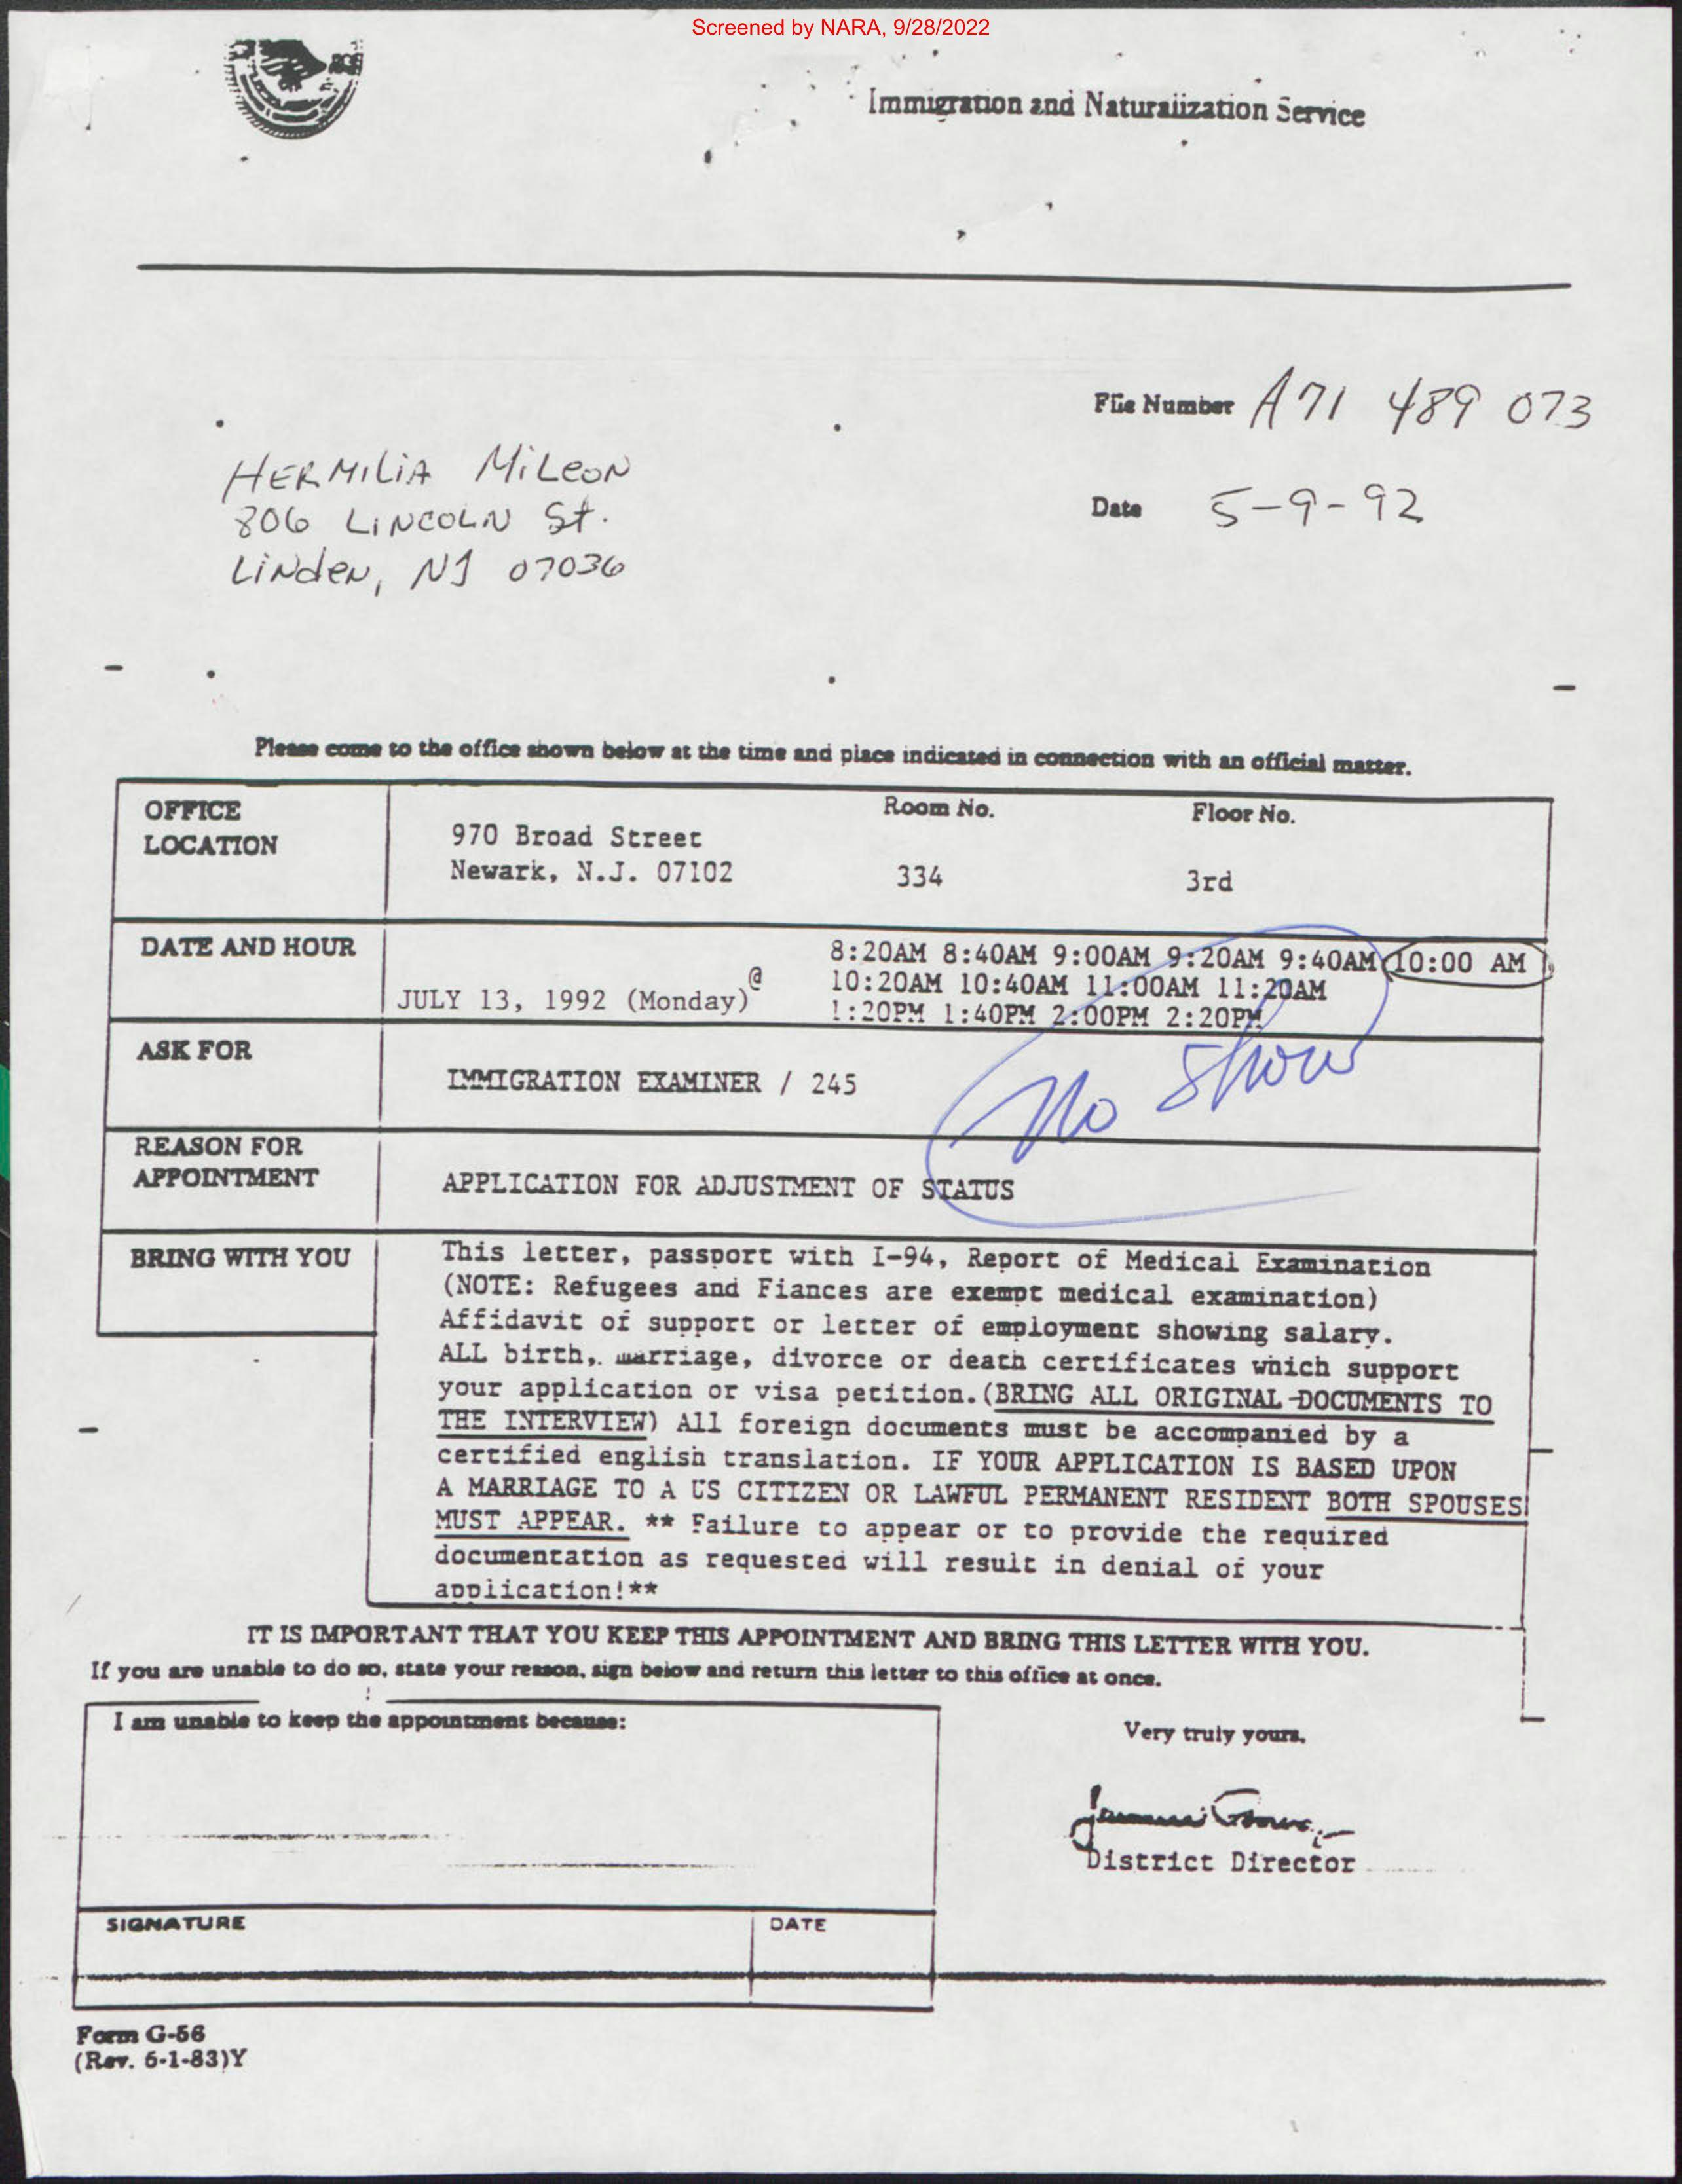 Screened by NARA, 9/28/2022
Immigration and Naturalization Service
File Number A71 489 073
HERMILIA MiLeoN
806 LINCOLN St.
Linden, NJ 07036
Date 5-9-92
Please come to the office shown below at the time and place indicated in connection with an official matter.
OFFICE LOCATION
970 Broad Street
Newark, N.J. 07102
Room No.
334
Floor No.
3rd
DATE AND HOUR
JULY 13, 1992 (Monday) @
8:20AM 8:40AM 9:00AM 9:20AM 9:40AM 10:00 AM
10:20AM 10:40AM 11:00AM 11:20AM
1:20PM 1:40PM 2:00PM 2:20PM
No Show
ASK FOR
IMMIGRATION EXAMINER / 245
REASON FOR
APPOINTMENT
APPLICATION FOR ADJUSTMENT OF STATUS
BRING WITH YOU
This letter, passport with I-94, Report of Medical Examination
(NOTE: Refugees and Fiances are exempt medical examination)
Affidavit of support or letter of employment showing salary.
ALL birth, marriage, divorce or death certificates which support
your application or visa petition.(BRING ALL ORIGINAL DOCUMENTS TO
THE INTERVIEW) All foreign documents must be accompanied by a
certified english translation. IF YOUR APPLICATION IS BASED UPON
A MARRIAGE TO A US CITIZEN OR LAWFUL PERMANENT RESIDENT BOTH SPOUSES
MUST APPEAR. ** Failure to appear or to provide the required
documentation as requested will result in denial of your
application!**
IT IS IMPORTANT THAT YOU KEEP THIS APPOINTMENT AND BRING THIS LETTER WITH YOU.
If you are unable to do so, state your reason, sign below and return this letter to this office at once.
I am unable to keep the appointment because:
Very truly yours,
District Director
SIGNATURE
DATE
Form G-56
(Rev. 6-1-83)Y